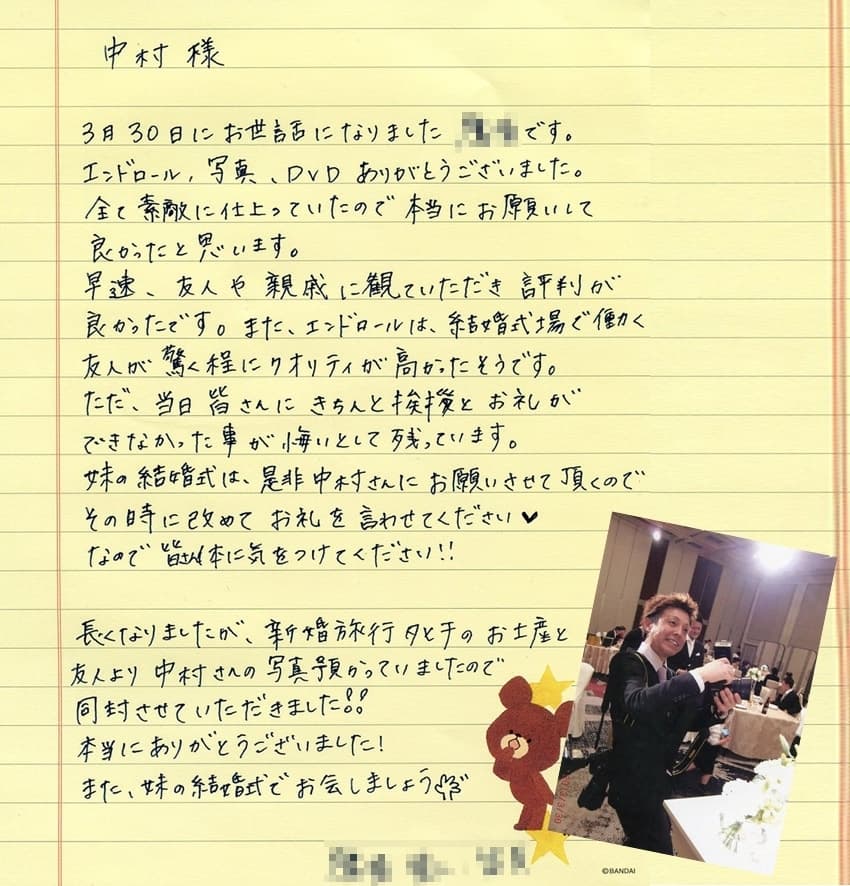 中村様
3月30日にお世話になりました です。
エンドロール,写真、DVDありがとうございました。
全て素敵に仕上っていたので本当にお願いして
良かったと思います。
早速、友人や親戚に観ていただき評判が
良かったです。また、エンドロールは、結婚式場で働く
友人が驚く程にクオリティが高かったそうです。
ただ、当日皆さんにきちんと挨拶とお礼が
できなかった事が悔いとして残っています。
妹の結婚式は、是非中村さんにお願いさせて頂くので
その時に改めてお礼を言わせてください♥
なので皆さん体に気をつけてください!!
長くなりましたが、新婚旅行タヒチのお土産と
友人より中村さんの写真預かっていましたので
同封させていただきました!!
本当にありがとうございました!
また、妹の結婚式でお会しましょう
©BANDAI